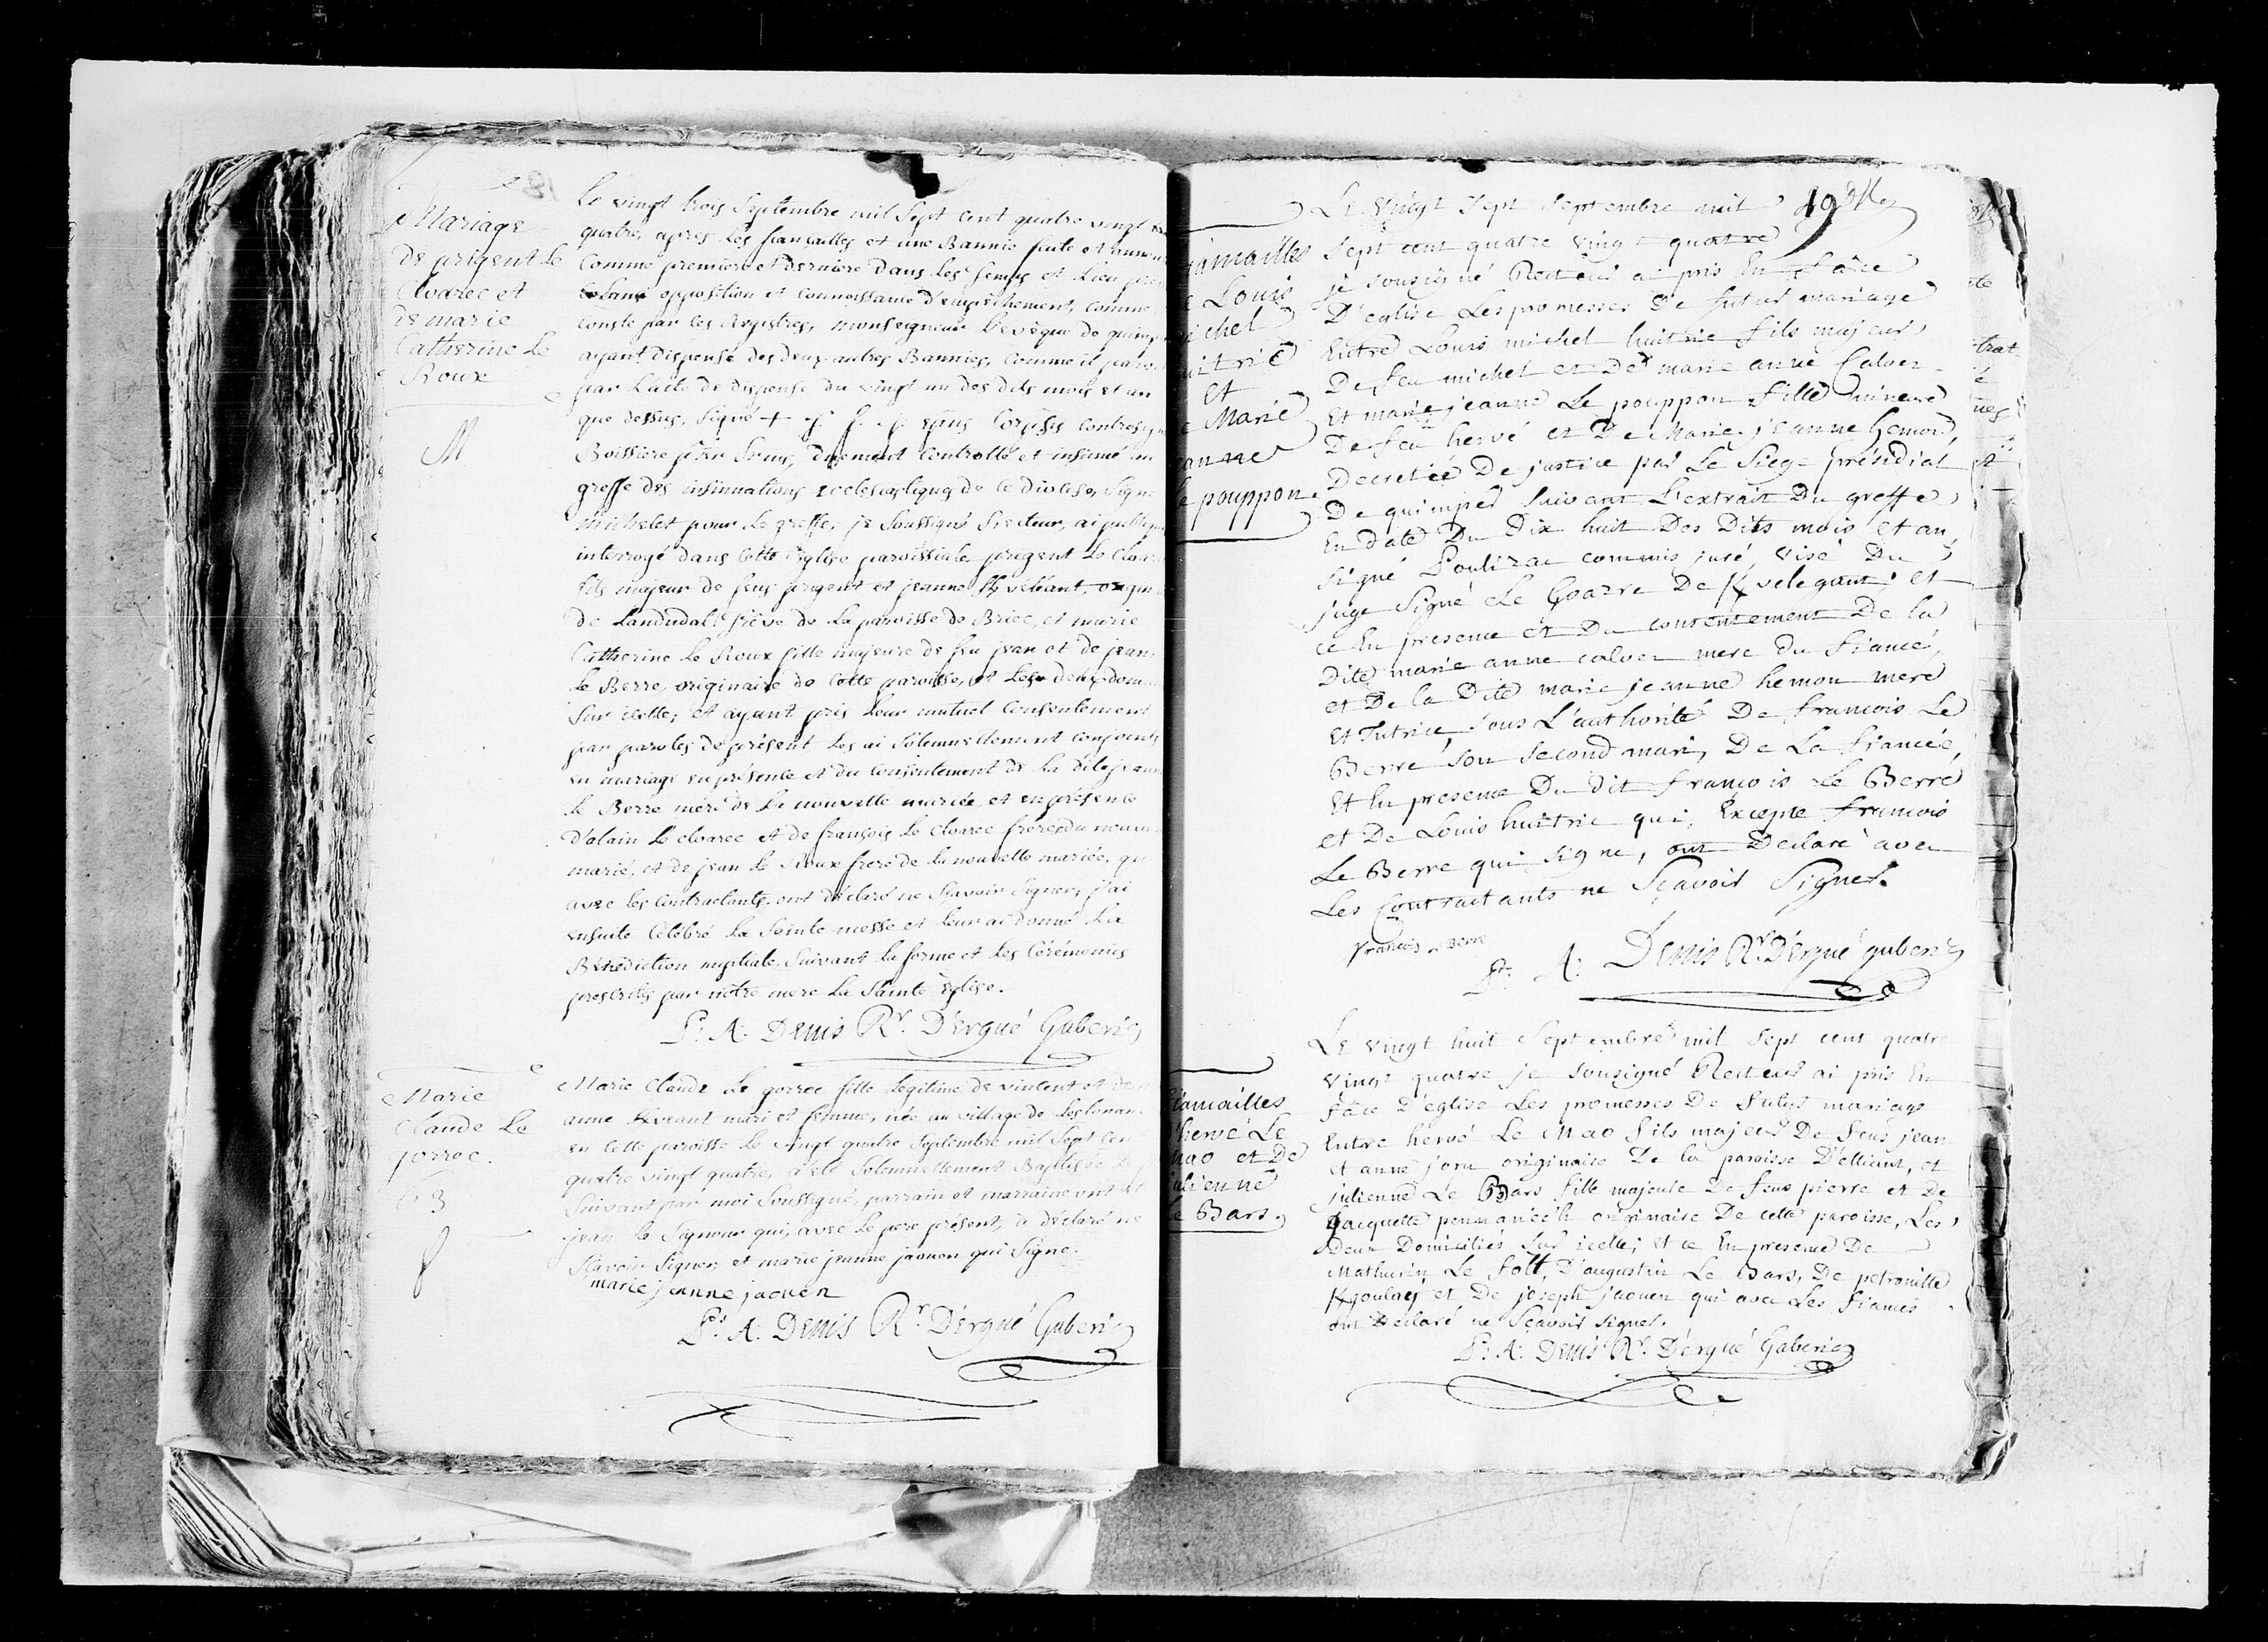 Mariage
de prigent le
Cloarec et
de marie
Catherine Le
Roux
M
Le vingt trois Septembre mil Sept cent quatre vingt
quatre, après les fiançailles et une Bannie faite et
Comme premiere et derniere dans les temps et lieu
opposition et connoissance d'empêchement, comme
conste par les Registres, monseigneur l'evêque de quimp
ayant Dispensé des deux autres Bannies, comme il
par L'acte de dispense du vingt un des dits mois et an
que dessus, Signé +
Boissiere duement Controllé et insinué au
greffe des insinuations ecclesiastiques de ce Diocese, Signé
Michelet pour le greffe, je Soussigné Recteur, ai
interrogé dans cette Eglise paroissiale prigent Le
fils majeur de feus prigent et jeanne
de Landudal trève de La paroisse de Briec, et marie
Catherine Le Roux fille majeure de feu jean et de jean
Le Berre, originaire de cette paroisse, et Les deux dom
Sur icelle; et ayant pris Leur mutuel Consentement
par paroles de présent Les ai Solemnellement conjoints
en mariage en présence et du consentement de La dite
Le Berre mere de La nouvelle mariée, et en présence
d'alain Le cloarec et de françois Le cloarec freres du nouv
marié, et de jean Le Roux frere de La nouvelle mariée, qu
avec les Contractants ont déclaré ne Sçavoir Signer; j'ai
ensuite Célébré La Sainte messe et Leur ai donné La
Bénédiction nuptiale, Suivant la forme et Les Cérémonies
prescrites par notre mere La Sainte Eglise.
A: Denis Rr. D'Ergué Gaberic
Marie
Claude Le
gorrec.
63
Marie Claude Le gorrec fille Légitime de vincent et
anne mari et femme, née au village de
en cette paroisse Le vingt quatre Septembre mil Sept cen
quatre vingt quatre, a été Solemnellement Baptisée
Suivant par moi Soussigné, parrain et marraine ont
jean Le Signour qui, avec Le pere présent, a déclaré ne
Sçavoir Signer, et marie jeanne jaouen qui Signe.
marie jeanne jaouen
A: Denis Rr D'Ergué Gaberic
Louis
ichel
uitric
et
Marie
anne
Le pouppon
19
Le Vingt Sept Septembre mil
Sept cent quatre vingt quatre
je sousigné Recteur ai pris En face
D'eglise Les promesses De futur mariage
Entre Louis michel huitric fils majeur
De feu michel et De marie anne Calvez
Et marie jeanne Le pouppon fille mineure
De feu hervé et De Marie jeanne hemon,
Decretée De justice par Le Siege présidial
De quimper suivant L'extrait Du greffe
En date Du Dix huit Des Dits mois et an
signé Poulizac commis juré, visé Du
juge Signé Le Goazre De Kvelegant; et
ce En presence et Du consentement De la
Dite marie anne calvez mere du fiancé,
et De la Dite marie jeanne hemon mere
et Tutrice, sous L'authorité De francois Le
Berre son second mari, De La fiancée,
Et En presence Du dit françois Le Berre
et De Louis huitric qui, Excepté francois
Le Berre qui signe, ont Declaré avec
Les Contractants ne Sçavoir Signer.
francois Le Berre
A: Denis Rr. D'Ergué gaberic
fiançailles
hervé Le
Mao et De
julienne
Le Bars
Le vingt huit Septembre mil Sept cent quatre
vingt quatre je sousigné Recteur ai pris En
face D'eglise Les promesses De futur mariage
Entre hervé Le Mao fils majeur De feus jean
et anne originaire De la paroisse D'elliant, et
julienne Le Bars fille majeure De feus pierre et De
jacquette originaire De cette paroisse, Les
Deux Domiciliés Sur icelle; et ce En presence De
Mathurin Le D'augustin Le Bars, De petronille
Kgoulay et De joseph jaouen qui avec Les fiancés
ont Declaré ne Sçavoir signer.
A: Denis Rr. D'Ergué Gaberic